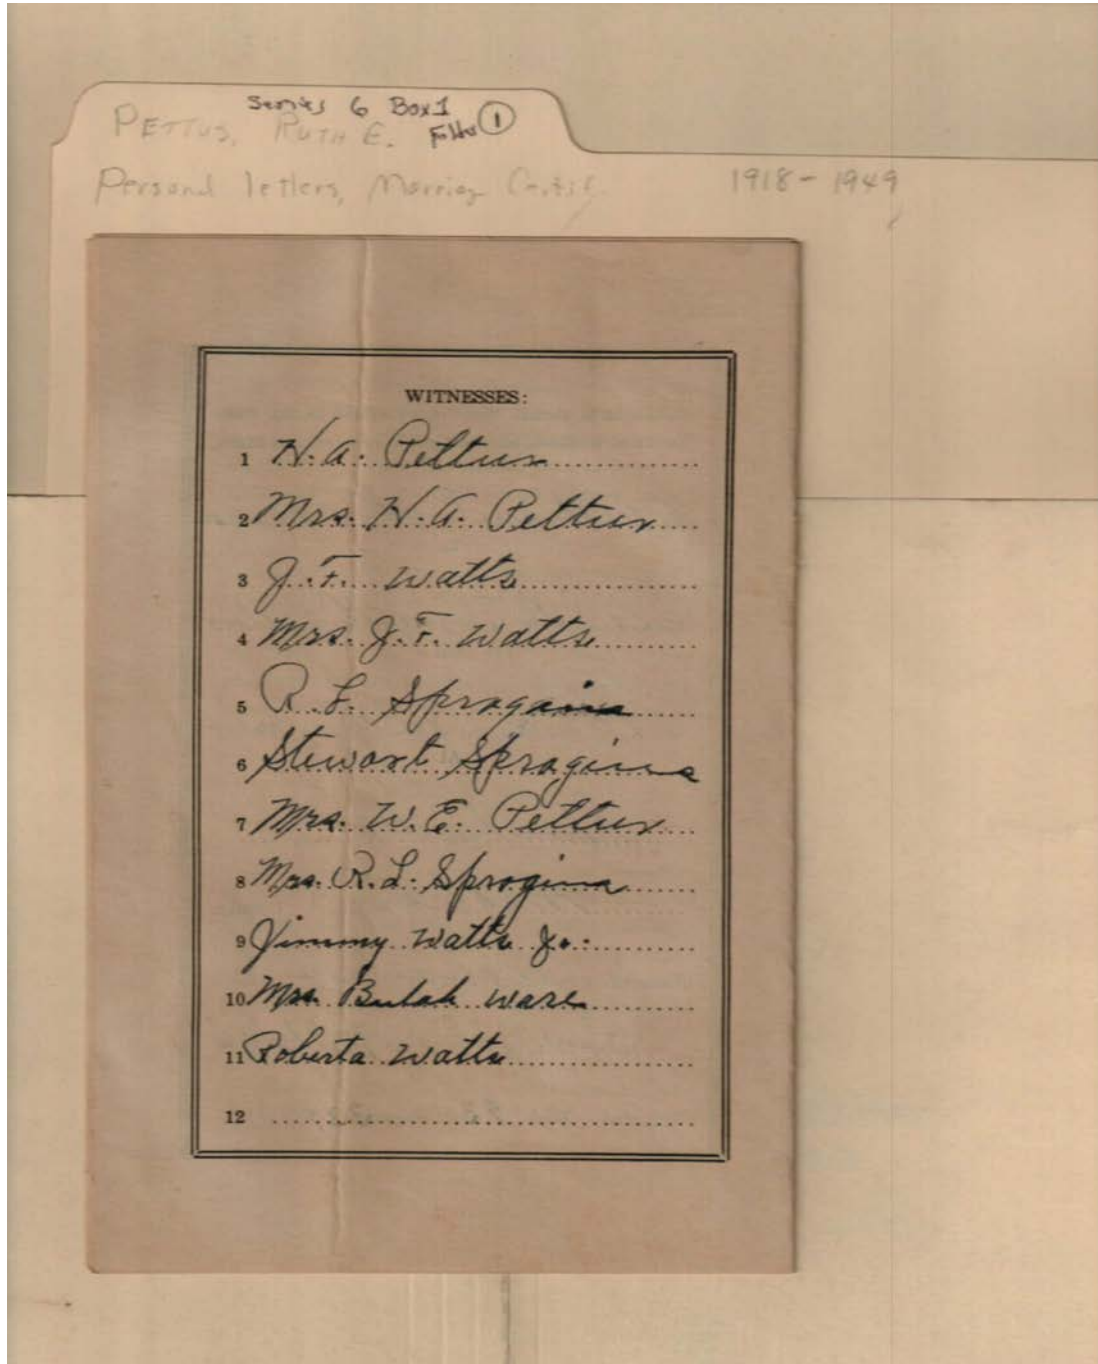 Series 6 Box 1
PETTUS, RUTH E. Folder 1
Personal letters, Marriage Certif. 1918-1949
WITNESSES:
1 H. A. Pettus
2 Mrs. H. A. Pettus
3 J. F. Watts
4 Mrs. J. F. Watts
5 R. L. Spragins
6 Stewart Spragins
7 Mrs. W. E. Pettus
8 Mrs. R. L. Spragins
9 Jimmy Watts Jr.
10 Mrs. Bulah Ware
11 Roberta Watts
12